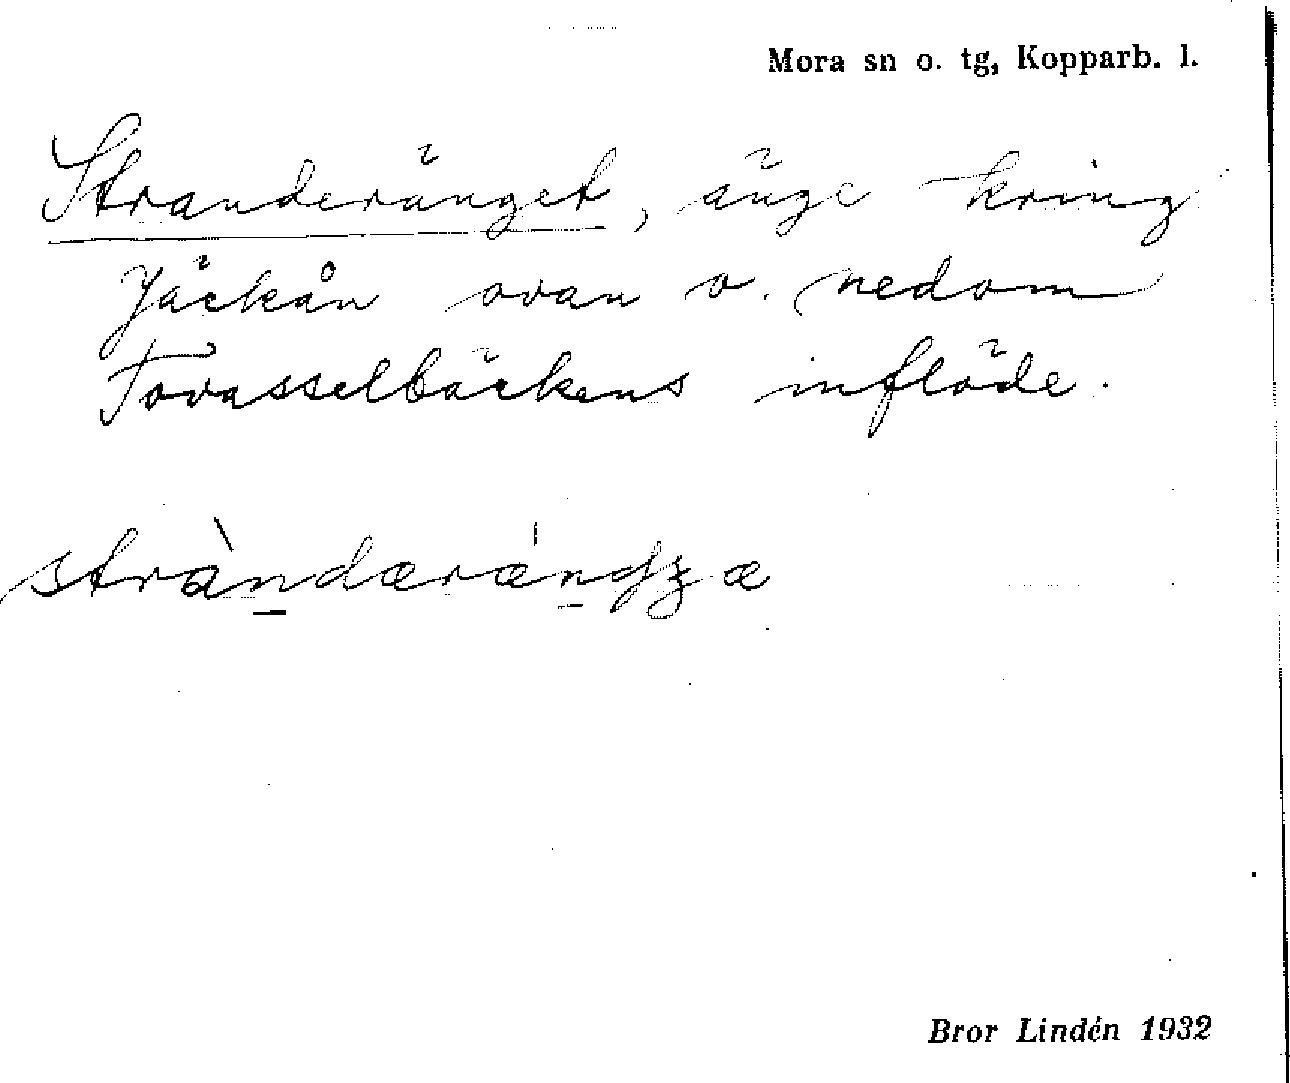 Mora sn o. tg, Kopparb. l.
Stranderänget, änge kring
Jäckån ovan o. nedom
Tovasselbäckens inflöde.
Bror Lindén 1932